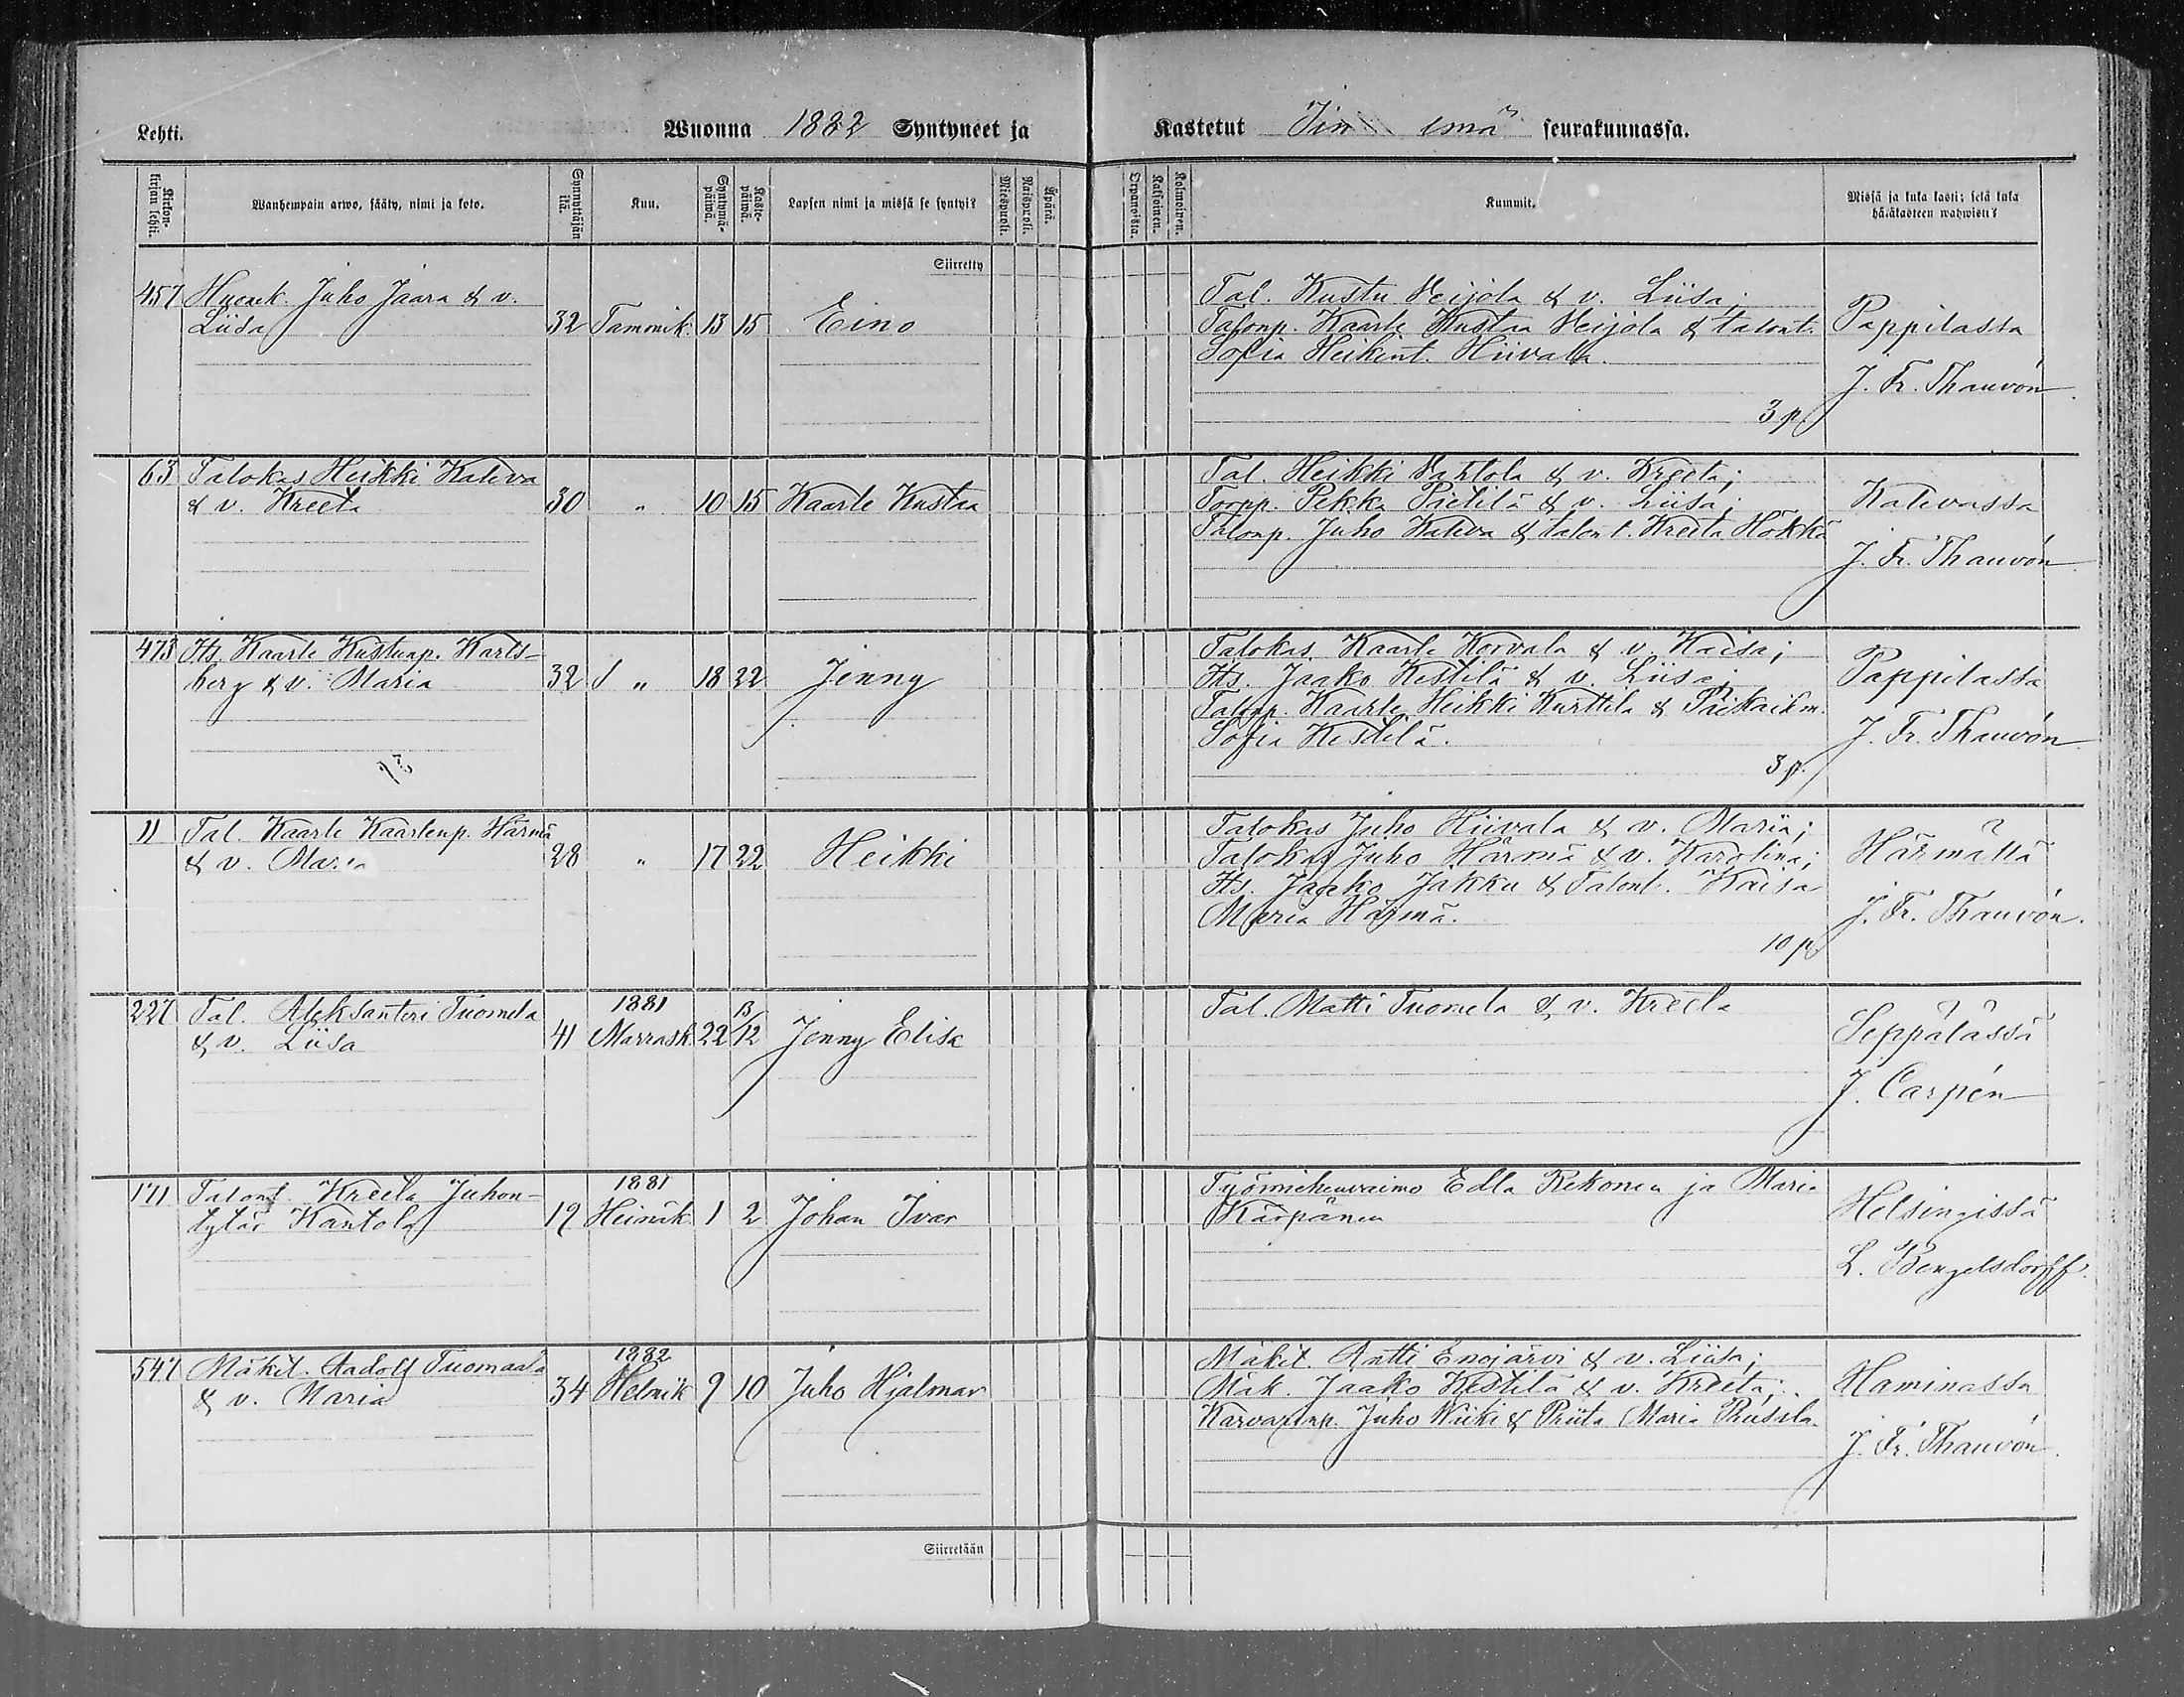 Lehti.
Wuonna 1882 Syntyneet ja
Kastetut Iin emä seurakunnassa.
Kirkon-kirjan lehti.
Wanhempain arwo, sääty, nimi ja koto.
Synnyttäjän ikä.
Kuu.
Syntymä-päiwä.
Kaste-päiwä.
Lapsen nimi ja missä se syntyi?
Miespuoli.
Naispuoli.
Äpärä.
Kaksoinen.
Kolmoinen.
Kummit.
Missä ja kuka kasti; sekä kuka
hätäkasteen wahwisti?
Siirretty
457 Huonek. Juho Jaara & v.
Liisa 32 Tammik. 13 15 Eino
Tal. Kustu Veijola & v. Liisa;
Talonp. Kaarle Kustaa Veijola & talont.
Sofia Heikint. Hiivala.
3 p.
Pappilassa
J. Fr. Thauvón
63 Talokas Heikki Kaleva
& v. Kreeta 30 " 10 15 Kaarle Kustaa
Tal. Heikki Vahtola & v. Kreeta;
Torpp. Pekka Pietilä & v. Liisa;
Talonp. Juho Kaleva & talont. Kreeta Hökkä
Kalevassa
J. Fr. Thauvón
473 Its. Kaarle Kustunp. Karls-
berg & v. Maria 32 " 18 22 Jenny
Talokas Kaarle Korvala & v. Kaisa;
Its. Jaako Kestilä & v. Liisa,
Talonp. Kaarle Heikki Kurttila & Piikaihm.
Sofia Kestilä.
3 p.
Pappilassa
J. Fr. Thauvón
11 Tal. Kaarle Kaarlenp. Härmä
& v. Maria 28 " 17 22 Heikki
Talokas Juho Hiivala & v. Maria;
Talokas Juho Härmä & v. Karolina;
Its. Jaako Jakku & Talont. Kaisa
Maria Härmä.
10 p.
Härmällä
J. Fr. Thauvón.
227 Tal. Aleksanteri Tuomela
& v. Liisa 41 1881 Marrask. 22 13/12 Jenny Elisa
Tal. Matti Tuomela & v. Kreeta
Seppälässä
J. Carpén
171 Talont. Kreeta Juhon-
tytär Kantola 19 1881 Heinäk. 1 2 Johan Ivar
Työmiehenvaimo Edla Rekonen ja Maria
Kärpänen
Helsingissä
L. Bengelsdorff.
547 Mäkit. Aadolf Tuomaala
& v. Maria 34 1882 Helmik. 9 10 Juho Hjalmar
Mäkit. Antti Enojärvi & v. Liisa;
Mäk. Jaako Kestilä & v. Kreeta;
Karvarinp. Juho Wiiki & Priita Maria
Haminassa
J. Fr. Thauvón.
Siirretään